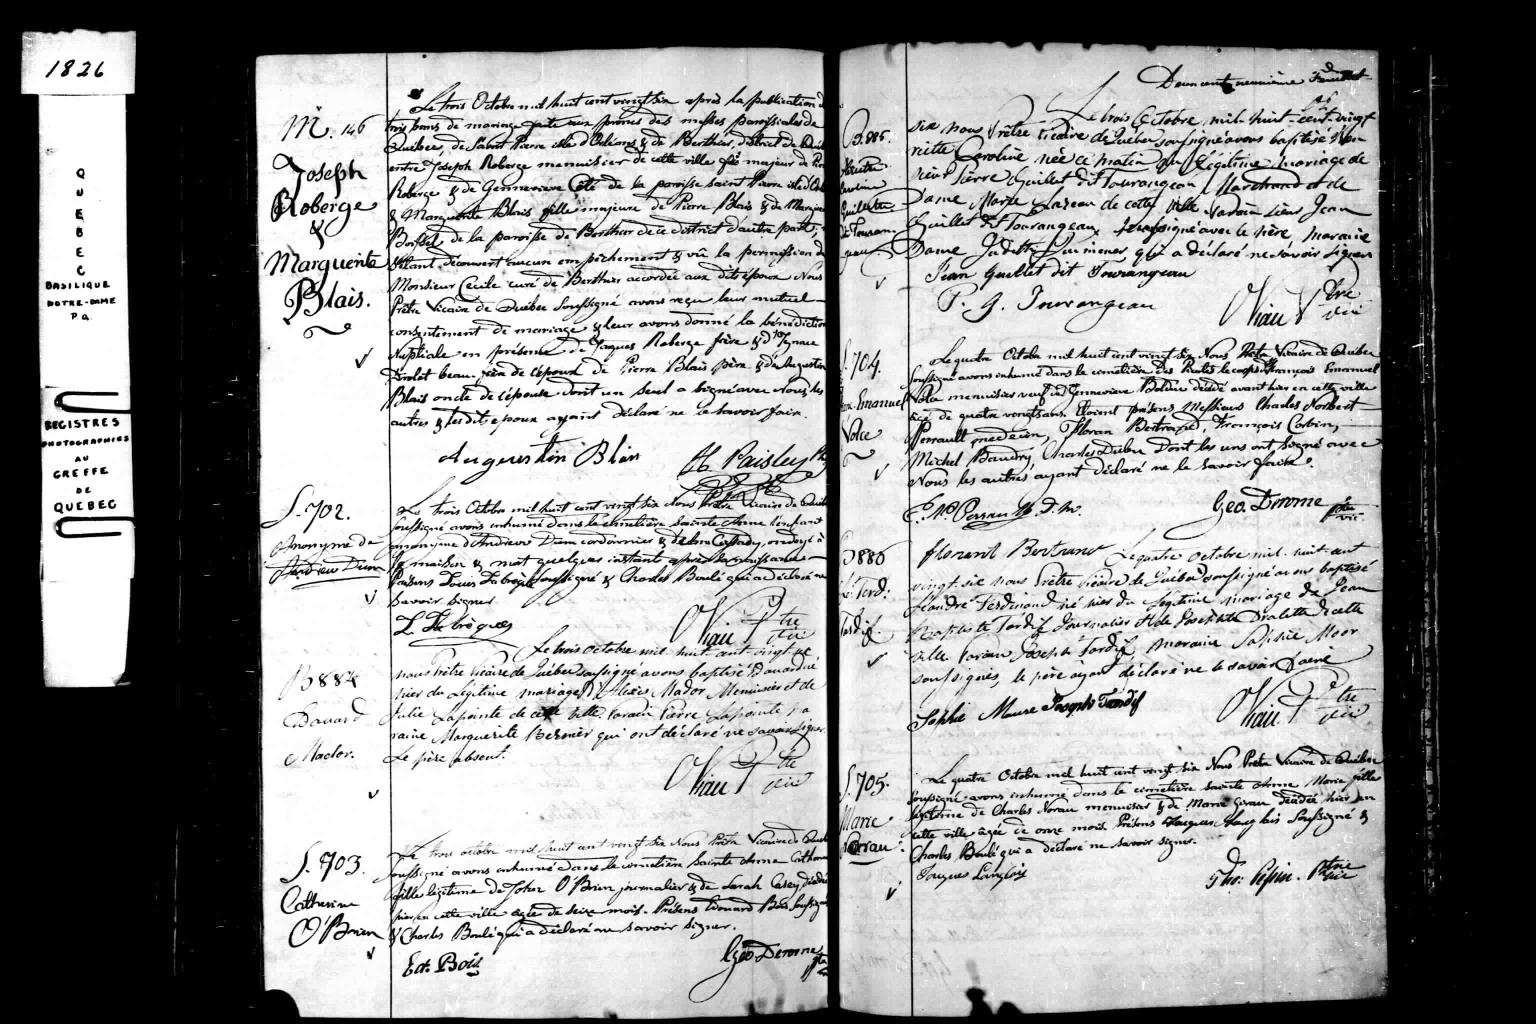 1826
QUEBEC
BASILIQUE
NOTRE-DAME
P.Q.
REGISTRES
PHOTOGRAPHIÉS
AU
GREFFE
DE
QUÉBEC
M. 146
Joseph
Roberge
&
Marguerite
Blais.
Le trois Octobre mil huit cent vingt six après la publication de
trois bans de mariage faite aux prônes des messes paroissiales de
Québec, de Saint Pierre isle d'Orléans & de Berthier, district de Québec
entre Joseph Roberge menuisier de cette ville fils majeur de Pierre
Roberge & de Genneviève Côté de la paroisse saint Pierre isle d'Orl
& Marguerite Blais fille majeure de Pierre Blais & de Marguerite
de la paroisse de Berthier de ce district d'autre part;
découvert aucun empêchement & vû la permission de
Monsieur Cécile curé de Berthier accordée aux dits époux Nous
Prêtre Vicaire de Québec soussigné avons reçu leur mutuel
consentement de mariage & leur avons donné la bénédiction
Nuptiale en présence de Jaques Roberge frère & d'Ignace
beau-père de l'époux de Pierre Blais père & d'Augustin
Blais oncle de l'épouse dont un seul a signé avec nous, les
autres & les dits époux ayant déclaré ne le savoir faire.
Augustin Blais
H. Paisley
S. 702.
Anonyme de
Le trois Octobre mil huit cent vingt six Nous Prêtre Vicaire de Québec
soussigné avons inhumé dans le cimetière Sainte Anne l'enfant
anonyme d'Andrew cordonnier & de Cassady, ondoyé à
la maison & mort quelques instants après sa naissance
Présens Louis soussigné & Charles Boulé qui a déclaré ne
savoir signer
Viau Ptre
vic
B 884
Edouard
Mador.
Le trois octobre mil huit cent vingt six
nous Prêtre Vicaire de Québec soussigné avons baptisé Edouard né
hier du légitime mariage d'Alexis Mador Menuisier et de
Julie Lapointe de cette ville. Parain Pierre Lapointe, ma
raine Marguerite Bernier qui ont déclaré ne savoir signer.
Le père absent.
Viau Ptre
vic
S. 703.
Catherine
O'Brien
Le trois octobre mil huit cent vingt six Nous Prêtre Vicaire de Québec
soussigné avons inhumé dans le cimetière Sainte Anne Catherine
fille légitime de John O'Brien journalier & de Sarah Casey, décédée
hier en cette ville agée de seize mois. Présens Edouard Bois soussigné
& Charles Boulé qui a déclaré ne savoir signer.
Ed. Bois
Geo. Derome
Deux cent neuvième
B. 885.
Le trois Octobre mil huit cent vingt
six nous Prêtre Vicaire de Québec soussigné avons baptisé Hen-
riette Caroline née ce matin du légitime mariage de
Sieur Pierre Guillet dit Tourangeau Marchand et de
Dame Marie Lazeau de cette Ville. Parain Sieur Jean
Guillet dit Tourangeau soussigné avec le père, maraine
Dame Judith qui a déclaré ne savoir signer
Jean Guillet dit Tourangeau
P. G. Tourangeau
Viau Ptre
vic
S. 704.
Emanuel
Volce
Le quatre Octobre mil huit cent vingt six Nous Prêtre Vicaire de Québec
soussigné avons inhumé dans le cimetière des le corps de François Emanuel
Volce menuisier veuf de Genneviève Bolduc décédé avant hier en cette ville
agé de quatre vingts ans. Etoient présens Messieurs Charles Norbert
Perrault médecin, Floran Bertrand, François Corbin,
Michel Baudry, Charles Dubuc Dont les uns ont signé avec
Nous les autres ayant déclaré ne le savoir faire.
Geo. Derome ptre
vic.
florent Bertrand
B 886
Ferd:
Tardif
Le quatre octobre mil huit cent
vingt-six nous Prêtre Vicaire de Québec soussigné avons baptisé
Léandre Ferdinand né hier du légitime mariage de Jean
Baptiste Tardif Journalier et de Josephte Dralette de cette
ville. Parain Joseph Tardif, maraine Sophie Moor
soussignés, le père ayant déclaré ne le savoir faire
Sophie Moure Joseph Tardif
Viau Ptre
vic
S. 705.
Marie
Le quatre Octobre mil huit cent vingt six Nous Prêtre Vicaire de Québec
soussigné avons inhumé dans le cimetière Sainte Anne Marie fille
légitime de Charles menuisier & de Marie décédée hier en
cette ville âgée de onze mois. Présens Jacques Langlois soussigné &
Charles Boulé qui a déclaré ne savoir signer.
Jacques Langlois
Tho: Pepin. Ptre
vic